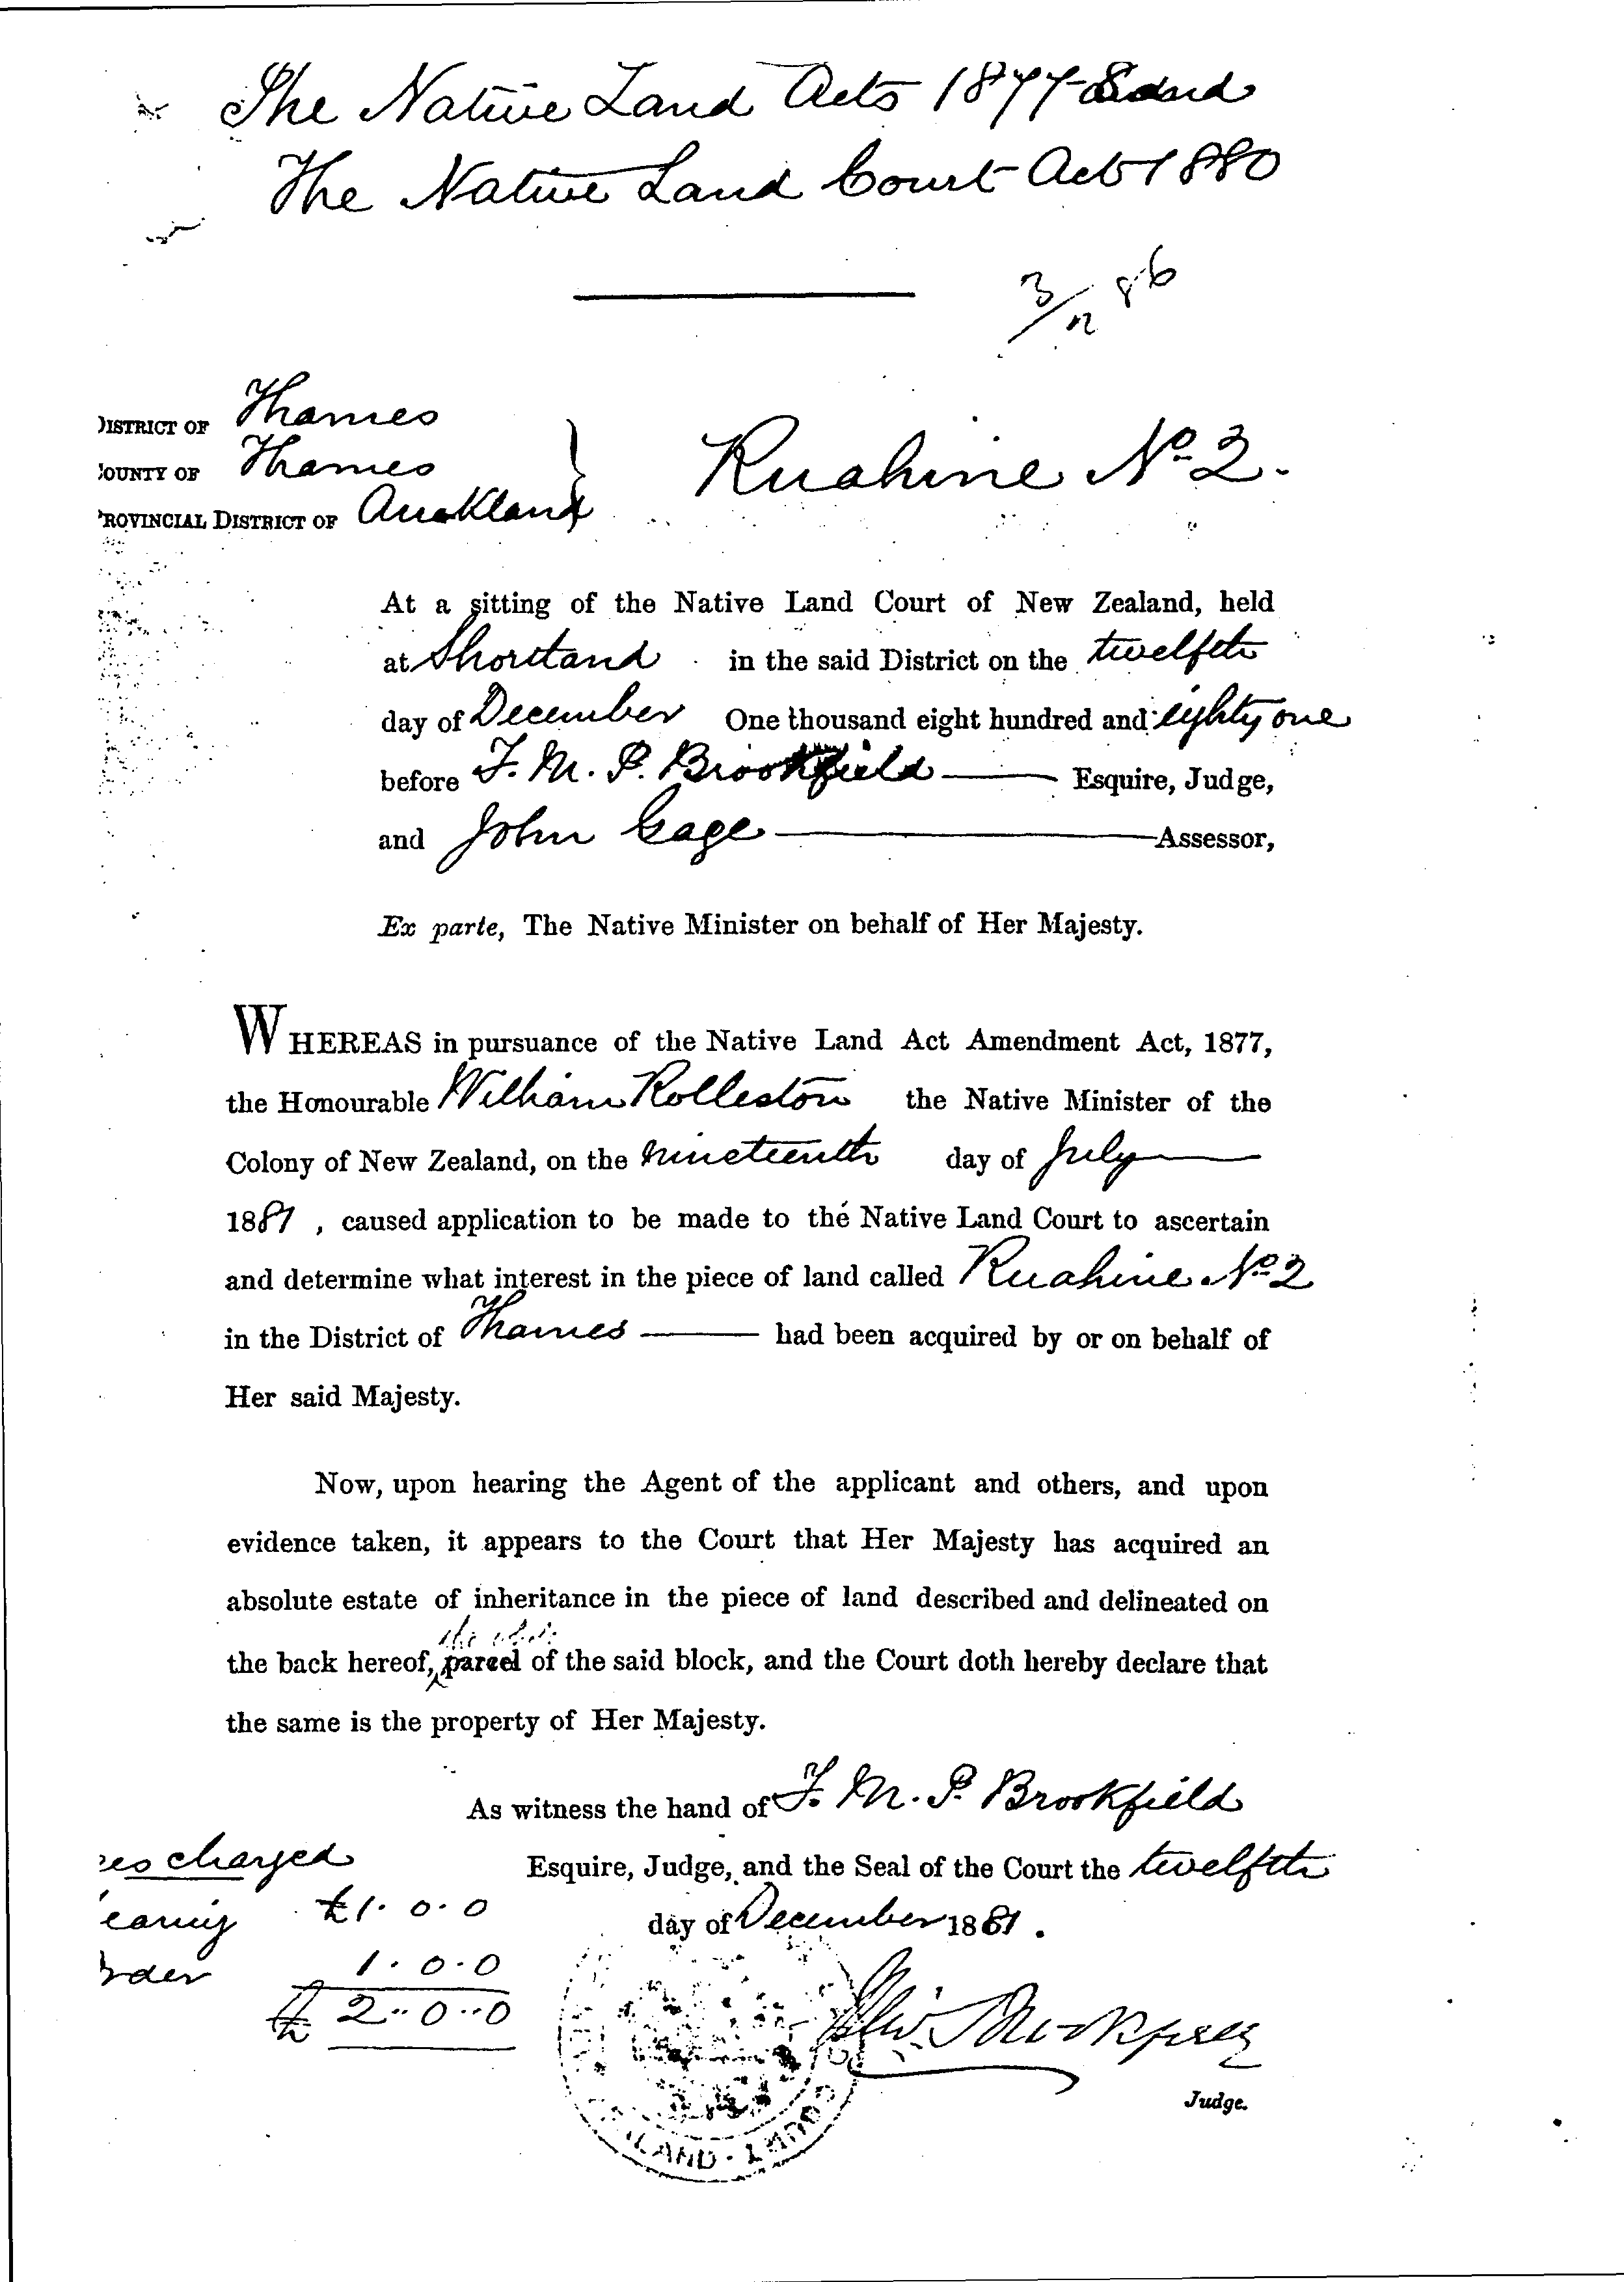 The Native Land Acts 1877 and
The Native Land Court Act 1880
3/12 86
DISTRICT OF Thames
COUNTY OF Thames
PROVINCIAL DISTRICT OF Auckland
Ruahine No 2.
At a sitting of the Native Land Court of New Zealand, held
at Shortland in the said District on the twelfth
day of December One thousand eight hundred and eighty one
before F. M. P. Brookfield Esquire, Judge,
and John Gage Assessor,
Ex parte, The Native Minister on behalf of Her Majesty.
WHEREAS in pursuance of the Native Land Act Amendment Act, 1877,
the Honourable William Rolleston the Native Minister of the
Colony of New Zealand, on the nineteenth day of July
1881, caused application to be made to the Native Land Court to ascertain
and determine what interest in the piece of land called Ruahine No 2
in the District of Thames had been acquired by or on behalf of
Her said Majesty.
Now, upon hearing the Agent of the applicant and others, and upon
evidence taken, it appears to the Court that Her Majesty has acquired an
absolute estate of inheritance in the piece of land described and delineated on
the back hereof, parcel of the said block, and the Court doth hereby declare that
the same is the property of Her Majesty.
As witness the hand of F. M. P. Brookfield
Esquire, Judge, and the Seal of the Court the twelfth
day of December 1881.
es charged
earing £1.0.0
rder 1.0.0
£2..0..0
Judge.